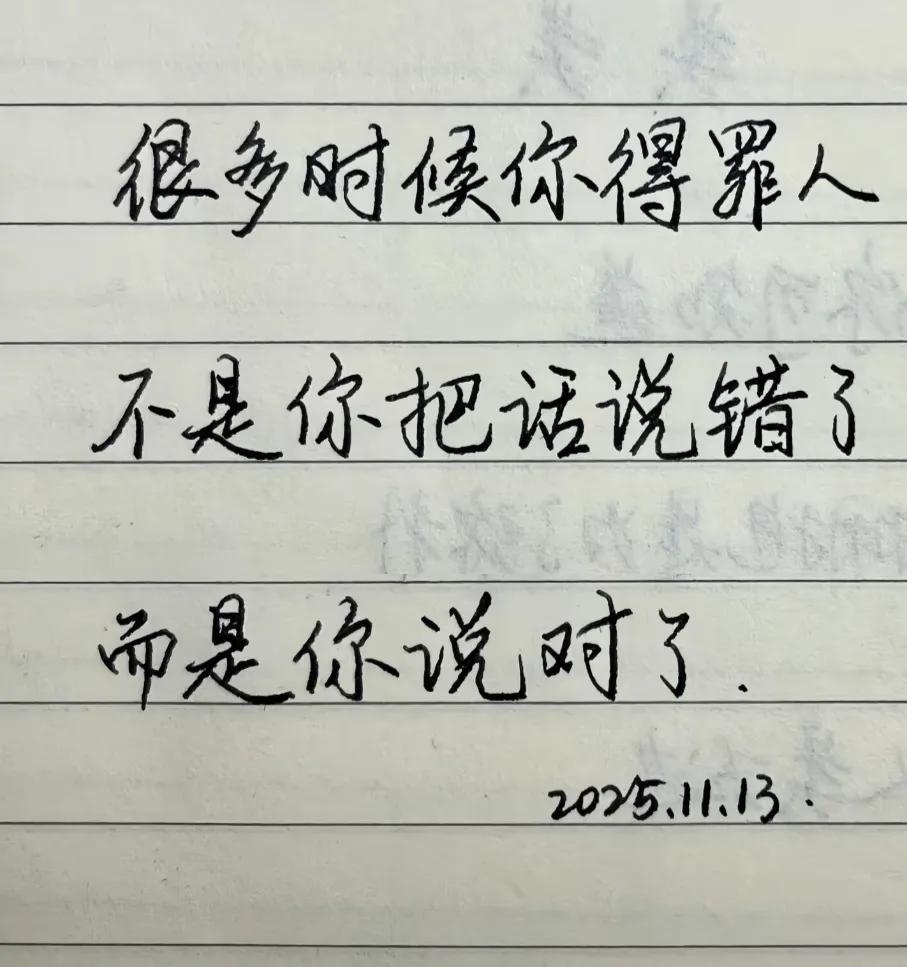 很多时候你得罪人
不是你把话说错了
而是你说对了.
2025.11.13.